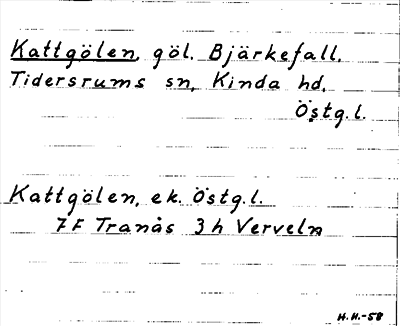 Kattgölen, göl. Bjärkefall.
Tidersrums sn, Kinda hd.
Östg.l.
Kattgölen, ek. Östg.l.
7F Tranås 3h Verveln
H.H.-58